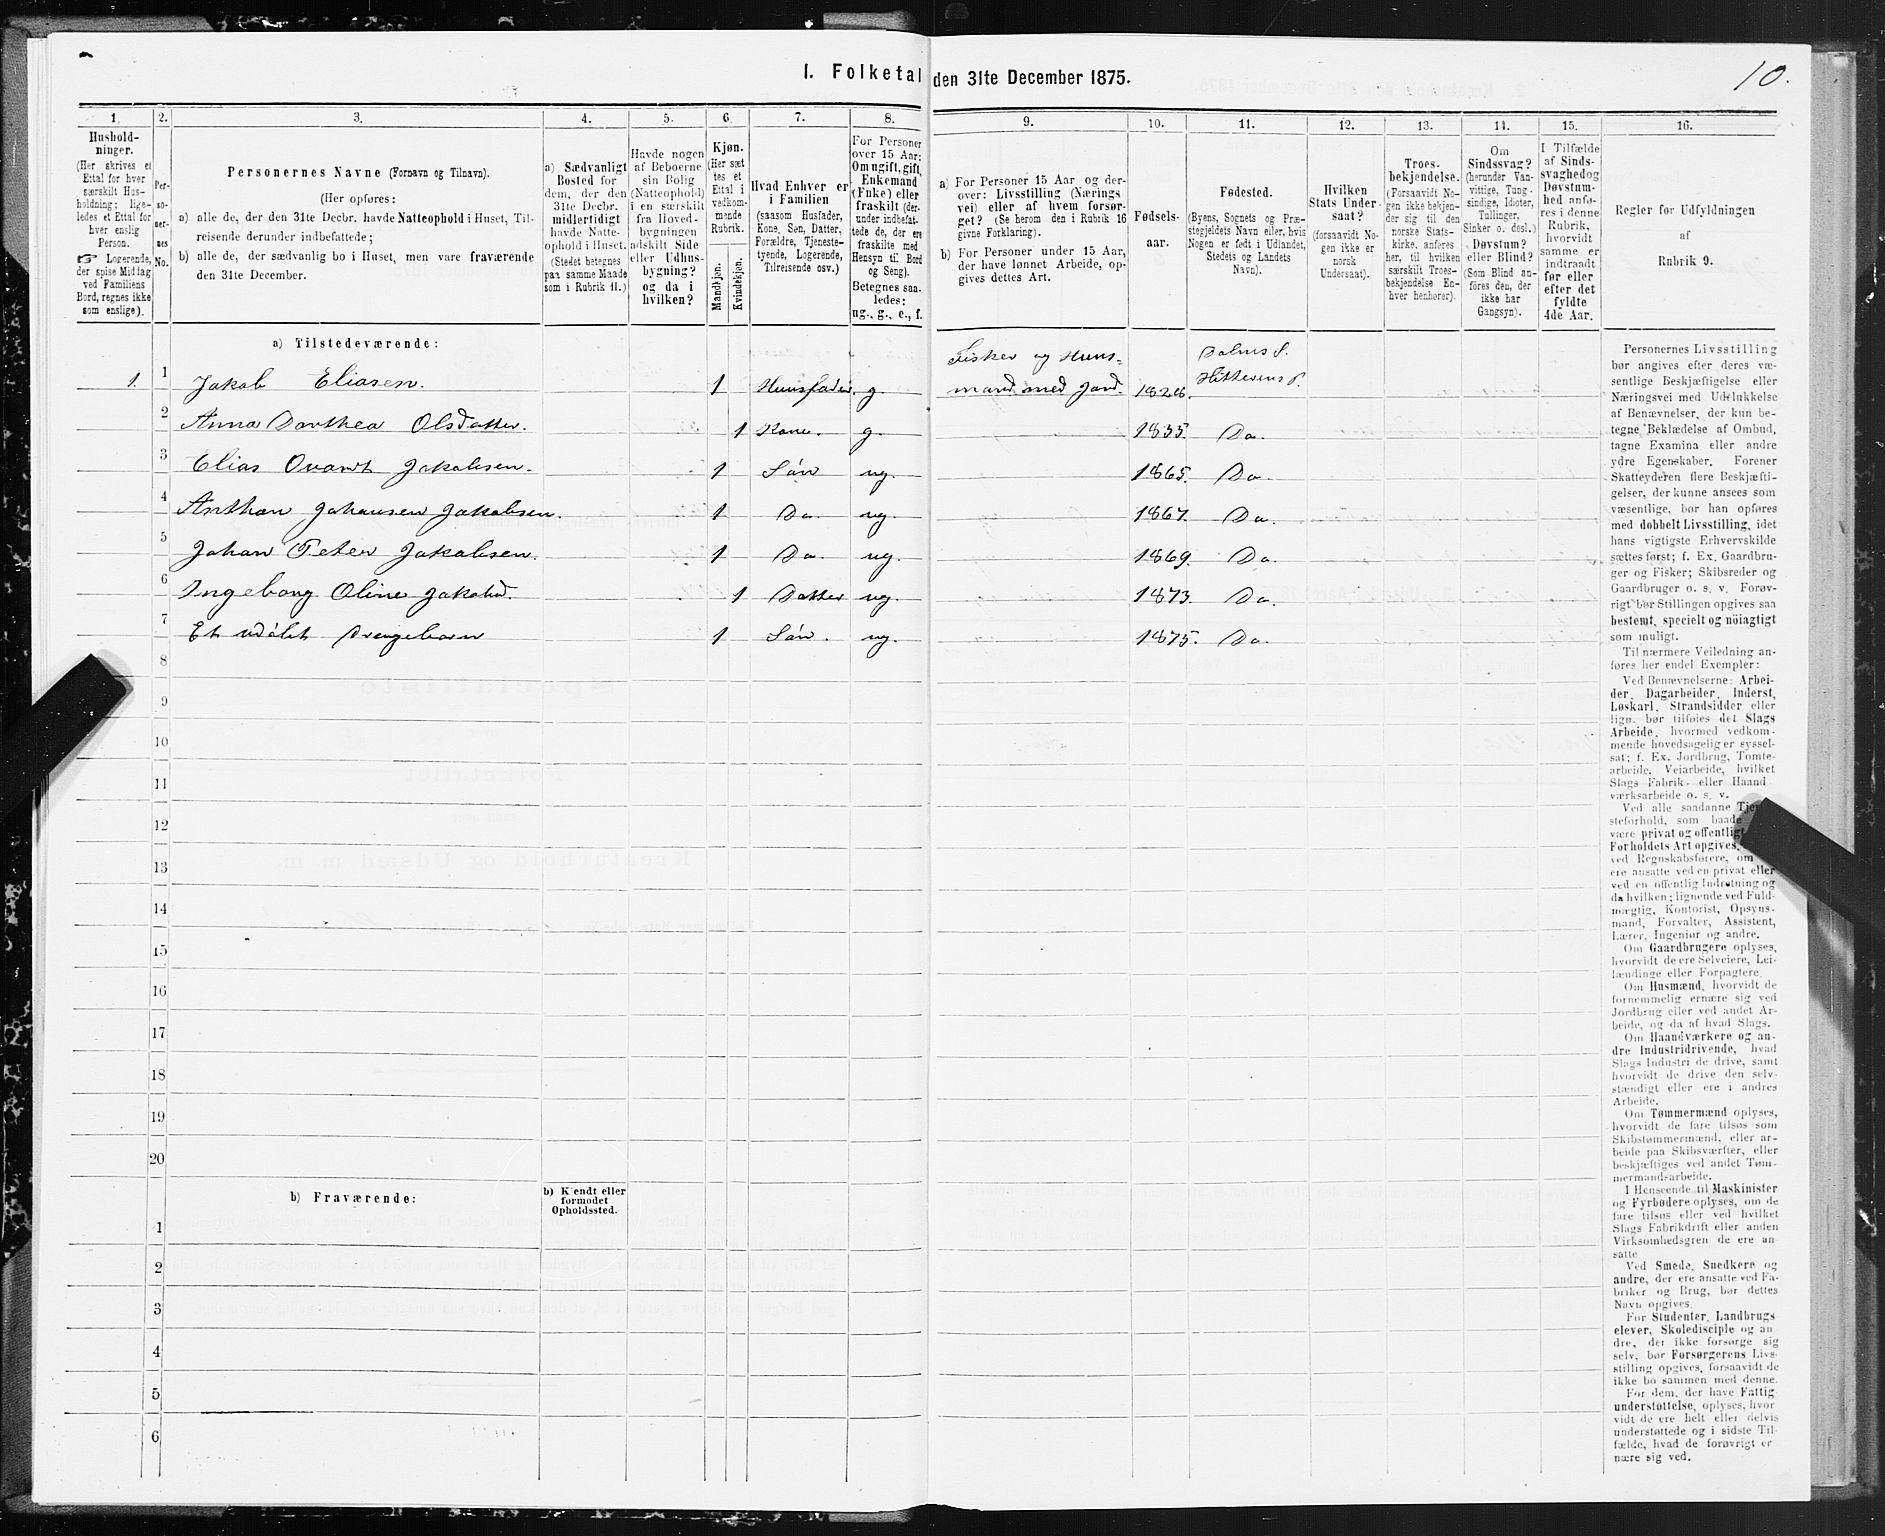 I. Folketal den 31te December 1875.
10.
1.
2.
3.
4.
5.
6.
7.
8.
9.
10.
11.
12.
13.
14.
15.
16.
Hushold-
ninger.
(Her skrives et
Ettal for hver
særskilt Hus-
holdning; lige-
ledes et Ettal for
hver enslig
Person.
☞ Logerende,
der spise Middag
ved Familiens
Bord, regnes ikke
som enslige).
Per-
so-
ner-
nes
No.
Personernes Navne (Fornavn og Tilnavn).
(Her opføres:
a) alle de, der den 31te Decbr. havde Natteophold i Huset, Til-
reisende derunder indbefattede;
b) alle de, der sædvanlig bo i Huset, men vare fraværende
den 31te December.
a) Sædvanligt
Bosted for
dem, der den
31te Decbr.
midlertidigt
havde Natte-
ophold i Huset.
(Stedet betegnes
paa samme Maade
som i Rubrik 11.)
Havde nogen
af Beboerne
sin Bolig
(Natteophold)
i en særskilt
fra Hoved-
bygningen
adskilt Side
eller Udhus-
bygning?
og da i
hvilken?
Kjøn.
(Her sæt
tes et
Ettal i
vedkom-
mende
Rubrik.
Mandkjøn.
Kvindekjøn.
Hvad Enhver er
i Familien
(saasom Husfader,
Kone, Søn, Datter,
Forældre, Tjeneste-
tyende, Logerende,
Tilreisende osv.)
For Personer
over 15 Aar:
Om ugift, gift,
Enkemand
(Enke) eller
fraskilt (der-
under indbefat-
tede de, der ere
fraskilte med
Hensyn til Bord
og Seng).
Betegnes saa-
ledes:
ug., g., e., f.
a) For Personer 15 Aar og der-
over: Livsstilling (Nærings-
vei) eller af hvem forsør-
get? (Se herom den i Rubrik 16
givne Forklaring).
b) For Personer under 15 Aar,
der have lønnet Arbeide, op-
gives dettes Art.
Fødsels-
aar.
Fødested.
(Byens, Sognets og Præ-
stegjeldets Navn eller, hvis
Nogen er født i Udlandet,
Stedets og Landets
Navn).
Hvilken
Stats Under-
saat?
(forsaavidt No-
gen ikke er
norsk
Undersaat).
Troes-
bekjendelse.
(Forsaavidt No-
gen ikke bekjen-
der sig til den
norske Stats-
kirke, anføres
her, til hvilken
særskilt Troes-
bekjendelse En-
hver henhører).
Om
Sindssvag?
(herunder Van-
vittige, Tung-
sindige, Idioter,
Tullinger,
Sinker o. desl.)
Døvstum?
eller Blind?
(Som Blind an-
føres den, der
ikke har
Gangsyn).
I Tilfælde
af Sinds-
svaghed og
Døvstum-
hed anfø-
res i denne
Rubrik,
hvorvidt
samme er
indtraadt
før eller
efter det
fyldte
4de Aar.
Regler for Udfyldningen
af
Rubrik 9.
a) Tilstedeværende:
1. 1 Jakob Eliasen. 1 Huusfader. g. Fisker og Huus-
mand med Jord. 1828. Dolms S.
Hitterens P.
2 Anna Dorthea Olsdatter. 1 Kone. g. 1835. Do.
3 Elias Ovardt Jakobsen. 1 Søn ug. 1865. Do.
4 Anthon Johansen Jakobsen. 1 Do. ug. 1867. Do.
5 Johan Peter Jakobsen. 1 Do. ug. 1869. Do.
6 Ingeborg Oline Jakobsd. 1 Datter ug. 1873. Do.
7 Et udøbt Drengebarn 1 Søn. ug. 1875. Do.
8
9
10
11
12
13
14
15
16
17
18
19
20
b) Fraværende:
b) Kjendt eller
formodet
Opholdssted.
1
2
3
4
5
6
Personernes Livsstilling
bør angives efter deres væ-
sentlige Beskjæftigelse eller
Næringsvei med Udelukkelse
af Benævnelser, der kun be-
tegne Beklædelse af Ombud,
tagne Examina eller andre
ydre Egenskaber. Forener
Skatteyderen flere Beskjæfti-
gelser, der kunne ansees som
væsentlige, bør han opføres
med dobbelt Livsstilling, idet
hans vigtigste Erhvervskilde
sættes først; f. Ex. Gaardbru-
ger og Fisker; Skibsreder og
Gaardbruger o. s. v. Forøv-
rigt bør Stillingen opgives saa
bestemt, specielt og nøiagtigt
som muligt.
Til nærmere Veiledning an-
føres her endel Exempler:
Ved Benævnelserne: Arbei-
der, Dagarbeider, Inderst,
Løskarl, Strandsidder eller
lign. bør tilføies det Slags
Arbeide, hvormed vedkom-
mende hovedsagelig er syssel-
sat; f. Ex. Jordbrug, Tomte-
arbeide, Veiarbeide, hvilket
Slags Fabrik- eller Haand-
værksarbeide o. s. v.
Ved alle saadanne
steforhold, som baade
være privat og offentligt
Forholdets Art opgives,
ved Regnskabsførere, om
ere ansatte ved en privat eller
ved en offentlig Indretning og
da hvilken; lignende ved Fuld-
mægtig, Kontorist, Opsyns-
mand, Forvalter, Assistent,
Lærer, Ingeniør og andre.
Om Gaardbrugere oplyses,
hvorvidt de ere Selveiere, Lei-
lændinge eller Forpagtere.
Om Husmænd, hvorvidt de
fornemmelig ernære sig ved
Jordbrug eller ved andet Ar-
beide, og da af hvad Slags.
Om Haandværkere og an-
dre Industridrivende, hvad
Slags Industri de drive, samt
hvorvidt de drive den selv-
stændigt eller ere i andres
Arbeide.
Om Tømmermænd oplyses,
hvorvidt de fare tilsøs som
Skibstømmermænd, eller ar-
beide paa Skibsværfter, eller
beskjæftiges ved andet Tøm-
mermandsarbeide.
I Henseende til Maskinister
og Fyrbødere oplyses, om de
fare tilsøs eller ved hvilket
Slags Fabrikdrift eller anden
Virksomhedsgren de ere an-
satte.
Ved Smede, Snedkere og
andre, der ere ansatte ved Fa-
briker og Brug, bør dettes
Navn opgives.
For Studenter, Landbrugs-
elever, Skoledisciple og an-
dre, der ikke forsørge sig
selv, bør Forsørgerens Livs-
stilling opgives, forsaavidt de
ikke bo sammen med denne.
For dem, der have Fattig-
understøttelse, oplyses, hvor-
vidt de ere helt eller delvis
understøttede og i sidste Til-
fælde, hvad de forøvrigt er-
nære sig ved.